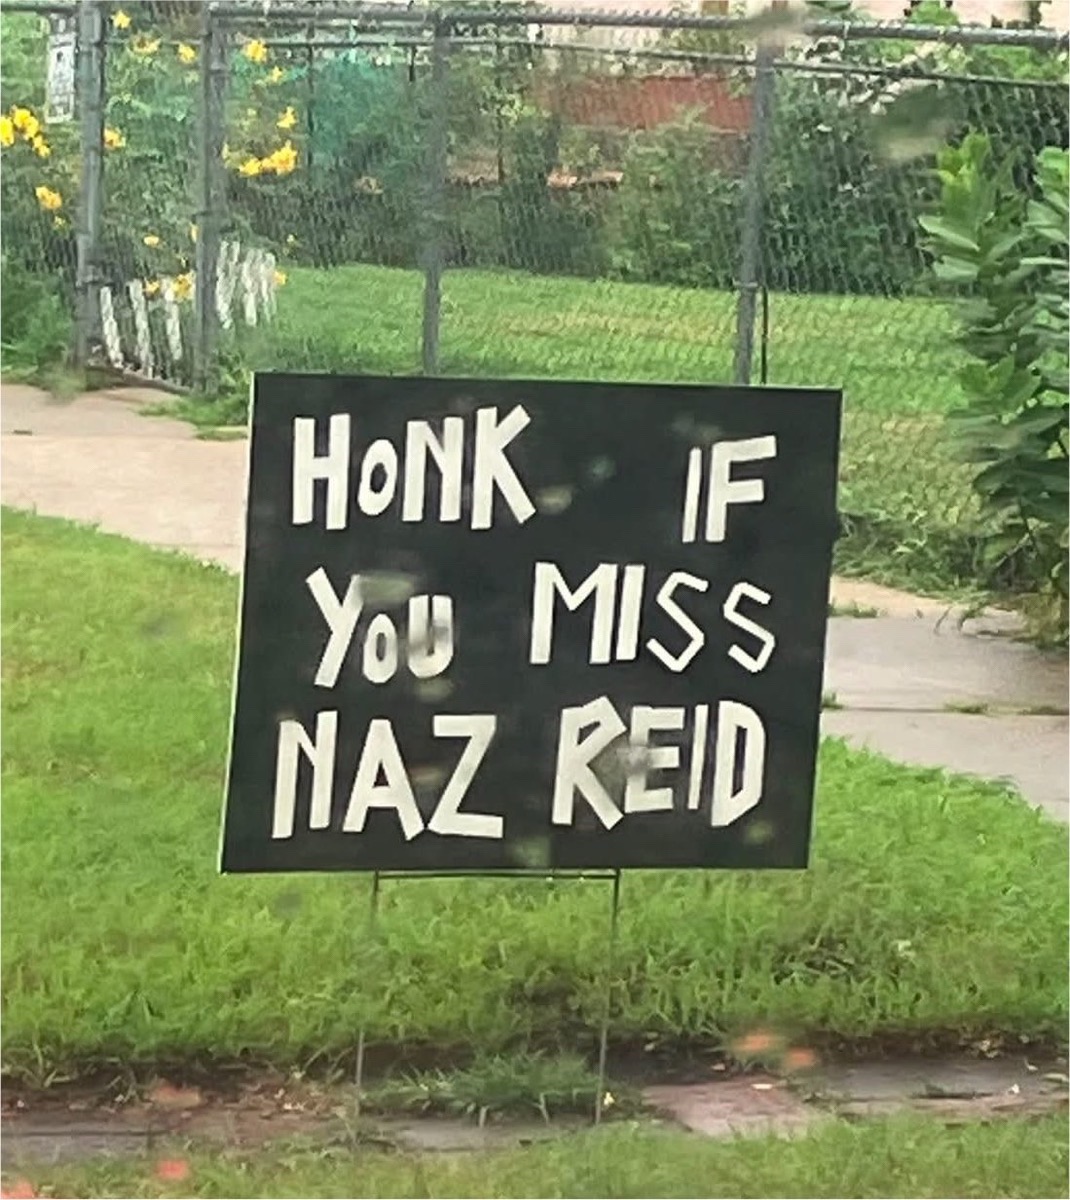 HoNK IF
YoU MISS
NAZ REID